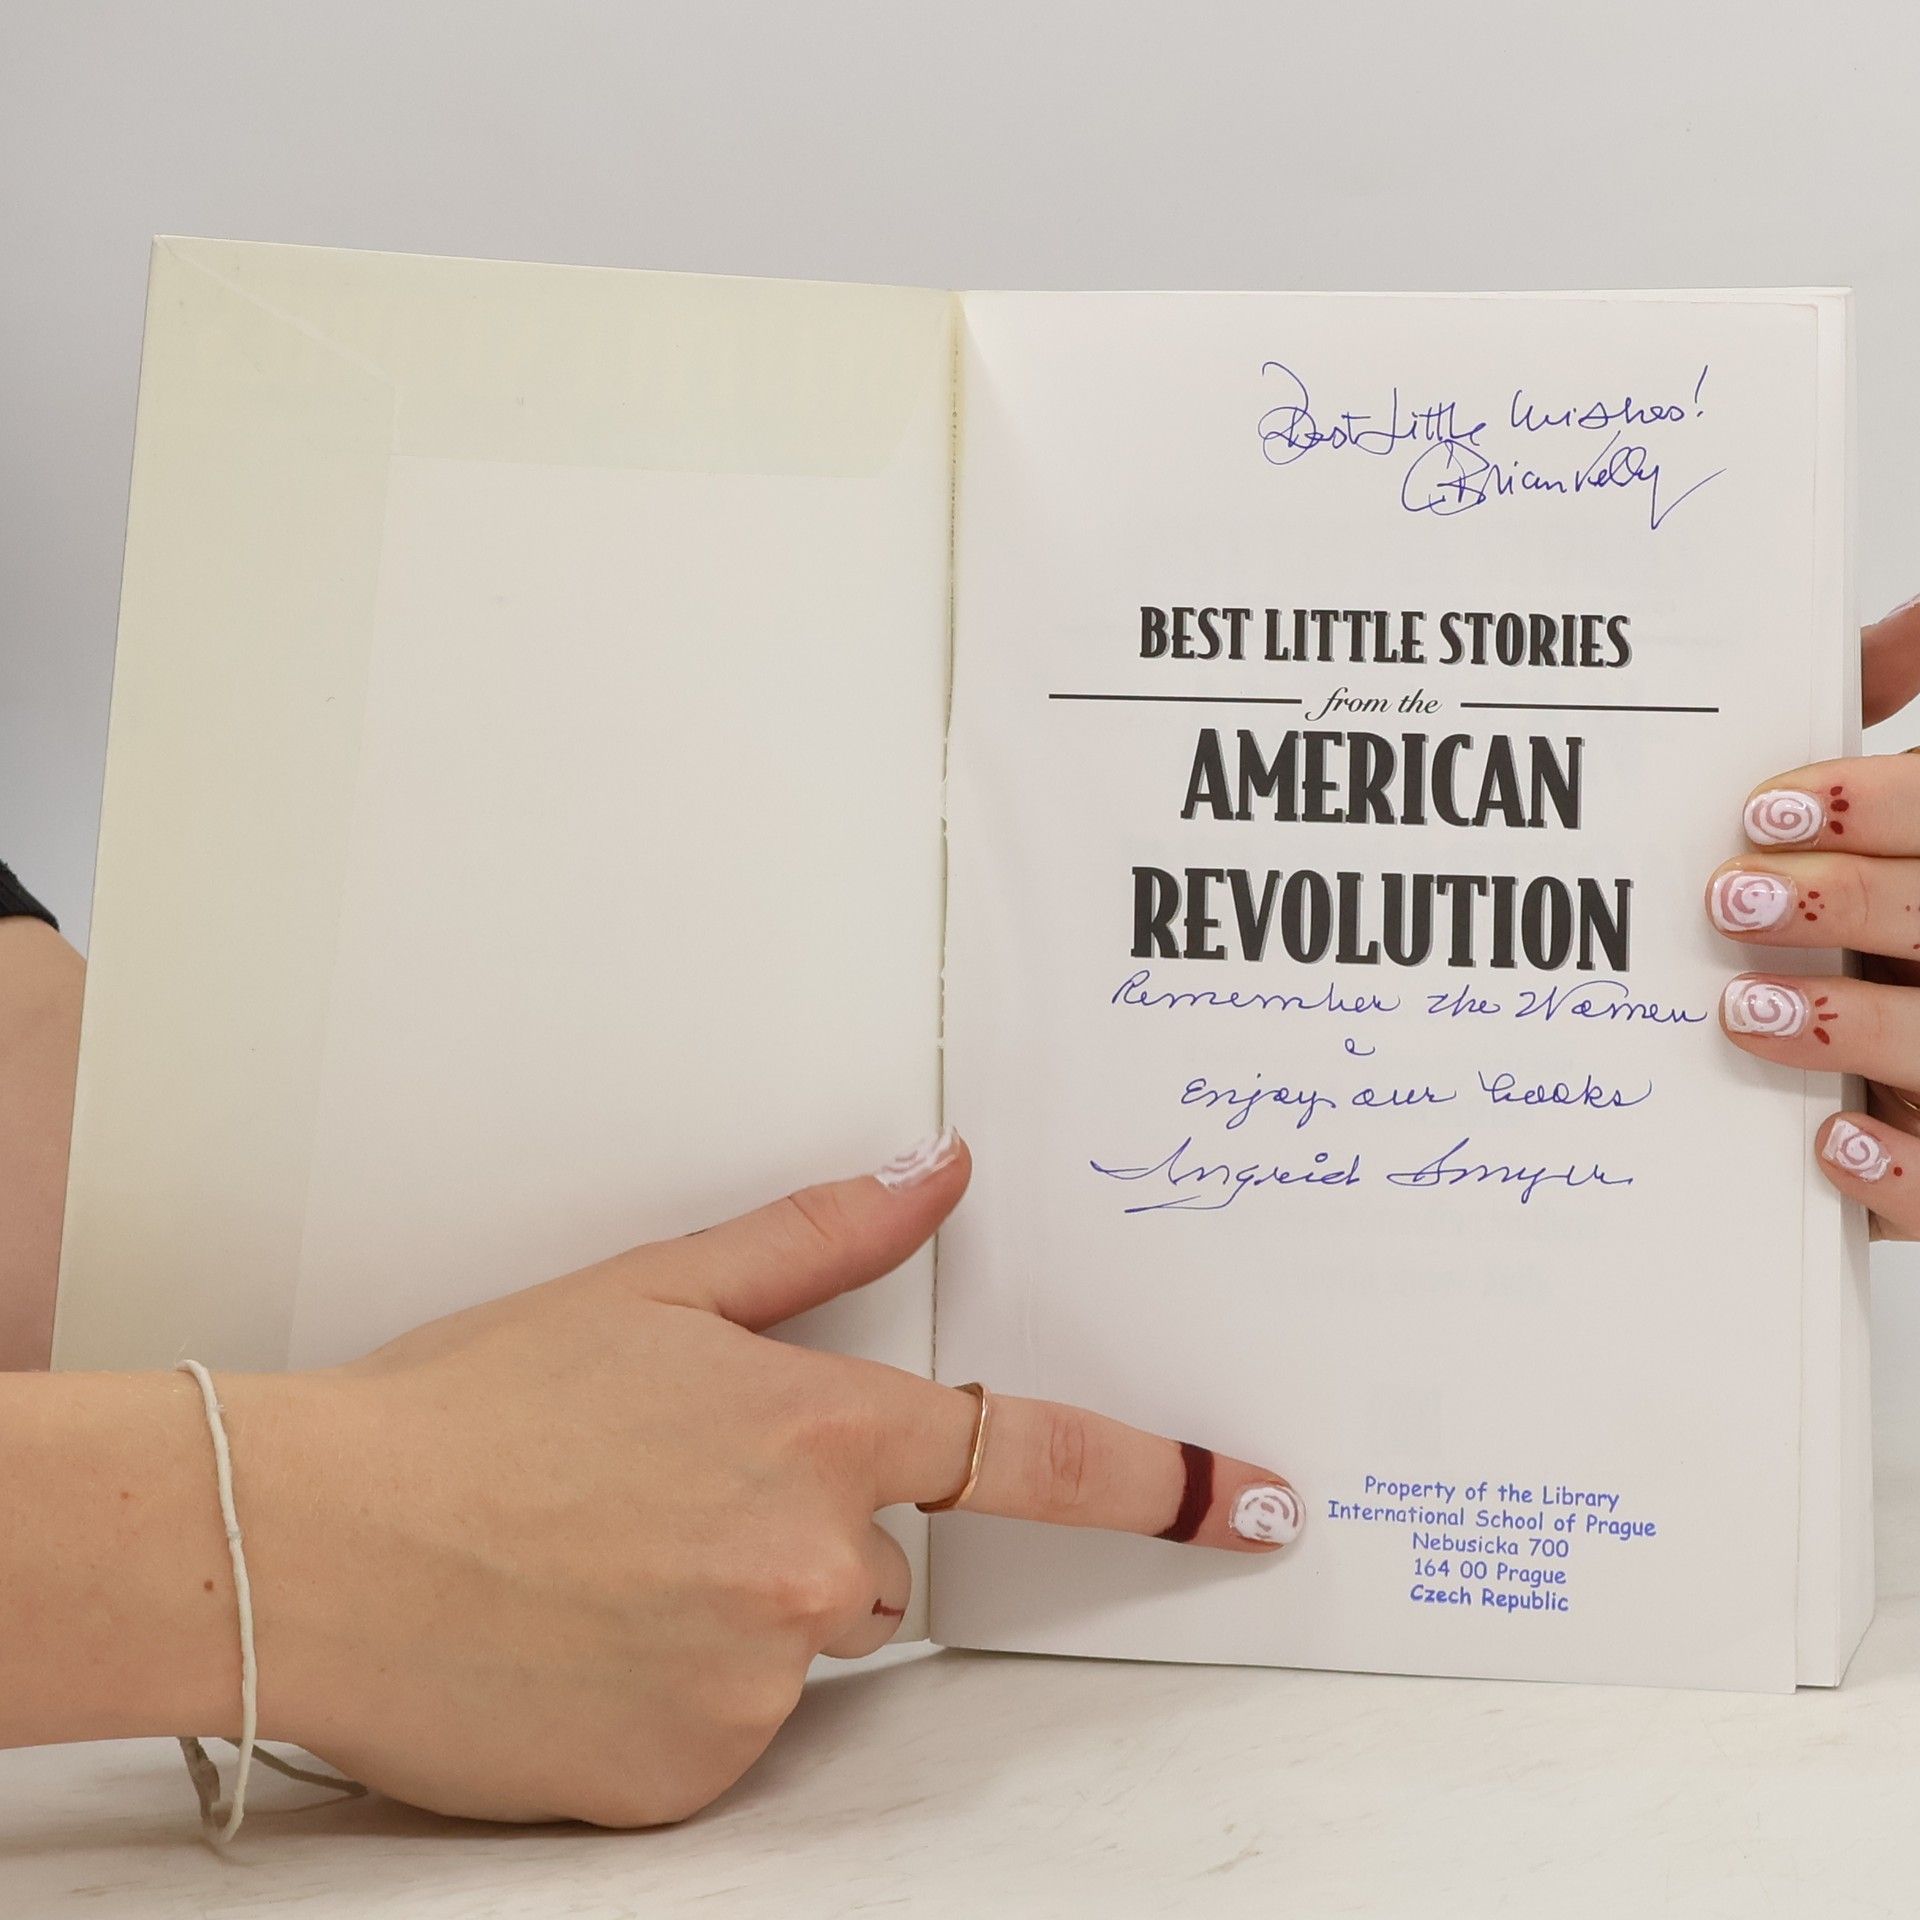 Best Little Wishes!
C. Brian Kelly
BEST LITTLE STORIES
from the
AMERICAN
REVOLUTION
Remember the Women
&
Enjoy our books
Ingrid Smyer
Property of the Library
International School of Prague
Nebusicka 700
164 00 Prague
Czech Republic